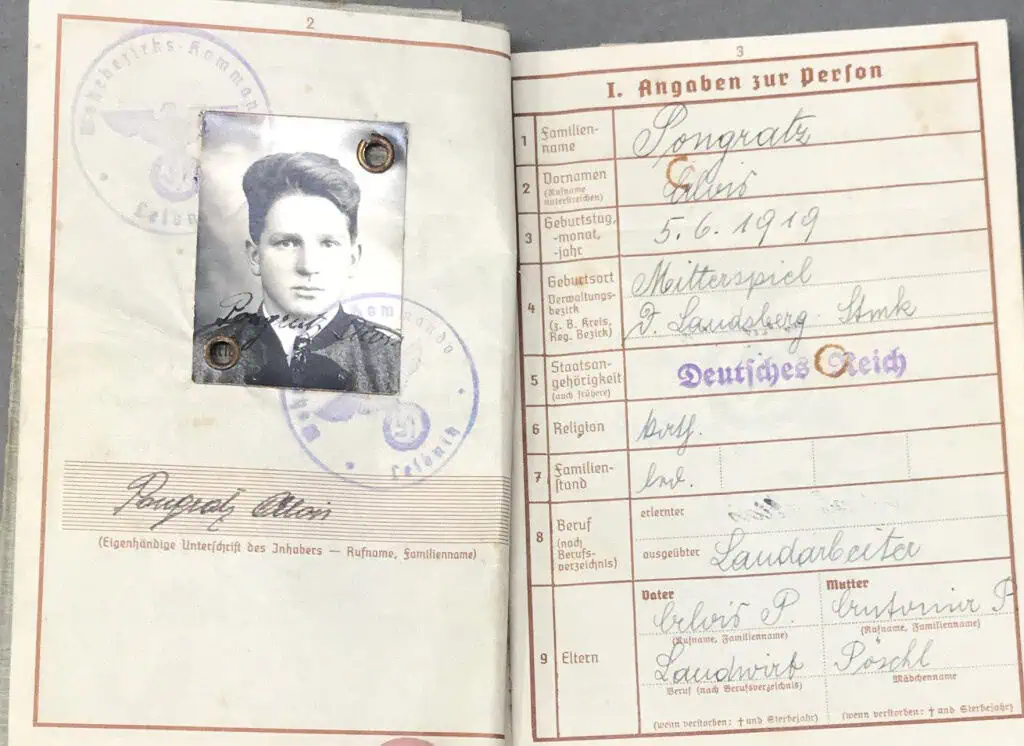 2
Wehrbezirks-Kommando
Leibnitz
Pongratz Alois
Wehrbezirks-Kommando
Leibnitz
Pongratz Alois
(Eigenhändige Unterschrift des Inhabers — Rufname, Familienname)
3
I. Angaben zur Person
1 Familien-
name
Pongratz
2 Vornamen
(Rufname
unterstreichen)
Alois
3 Geburtstag,
-monat,
-jahr
5. 6. 1919
4 Geburtsort
Verwaltungs-
bezirk
(z. B. Kreis,
Reg. Bezirk)
Mitterspiel
D. Landsberg Stmk
5 Staatsan-
gehörigkeit
(auch frühere)
Deutsches Reich
6 Religion
kath.
7 Familien-
stand
led.
8 Beruf
(nach
Berufs-
verzeichnis)
erlernter
ausgeübter Landarbeiter
9 Eltern
Vater
Alois P.
(Rufname, Familienname)
Landwirt
Beruf (nach Berufsverzeichnis)
(wenn verstorben: † und Sterbejahr)
Mutter
Antonia P
(Rufname, Familienname)
Pöschl
Mädchenname
(wenn verstorben: † und Sterbejahr)